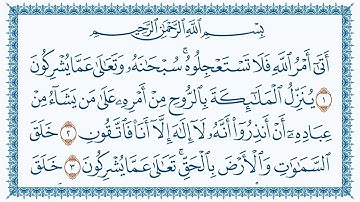 بِسْمِ اللَّهِ الرَّحْمَٰنِ الرَّحِيمِ
أَتَىٰٓ أَمْرُ اللَّهِ فَلَا تَسْتَعْجِلُوهُ ۚ سُبْحَانَهُ وَتَعَالَىٰ عَمَّا يُشْرِكُونَ
١ يُنَزِّلُ الْمَلَائِكَةَ بِالرُّوحِ مِنْ أَمْرِهِ عَلَىٰ مَن يَشَاءُ مِنْ
عِبَادِهِ أَنْ أَنذِرُوا أَنَّهُ لَا إِلَٰهَ إِلَّا أَنَا فَاتَّقُونِ ٢ خَلَقَ
السَّمَاوَاتِ وَالْأَرْضَ بِالْحَقِّ تَعَالَىٰ عَمَّا يُشْرِكُونَ ٣ خَلَقَ